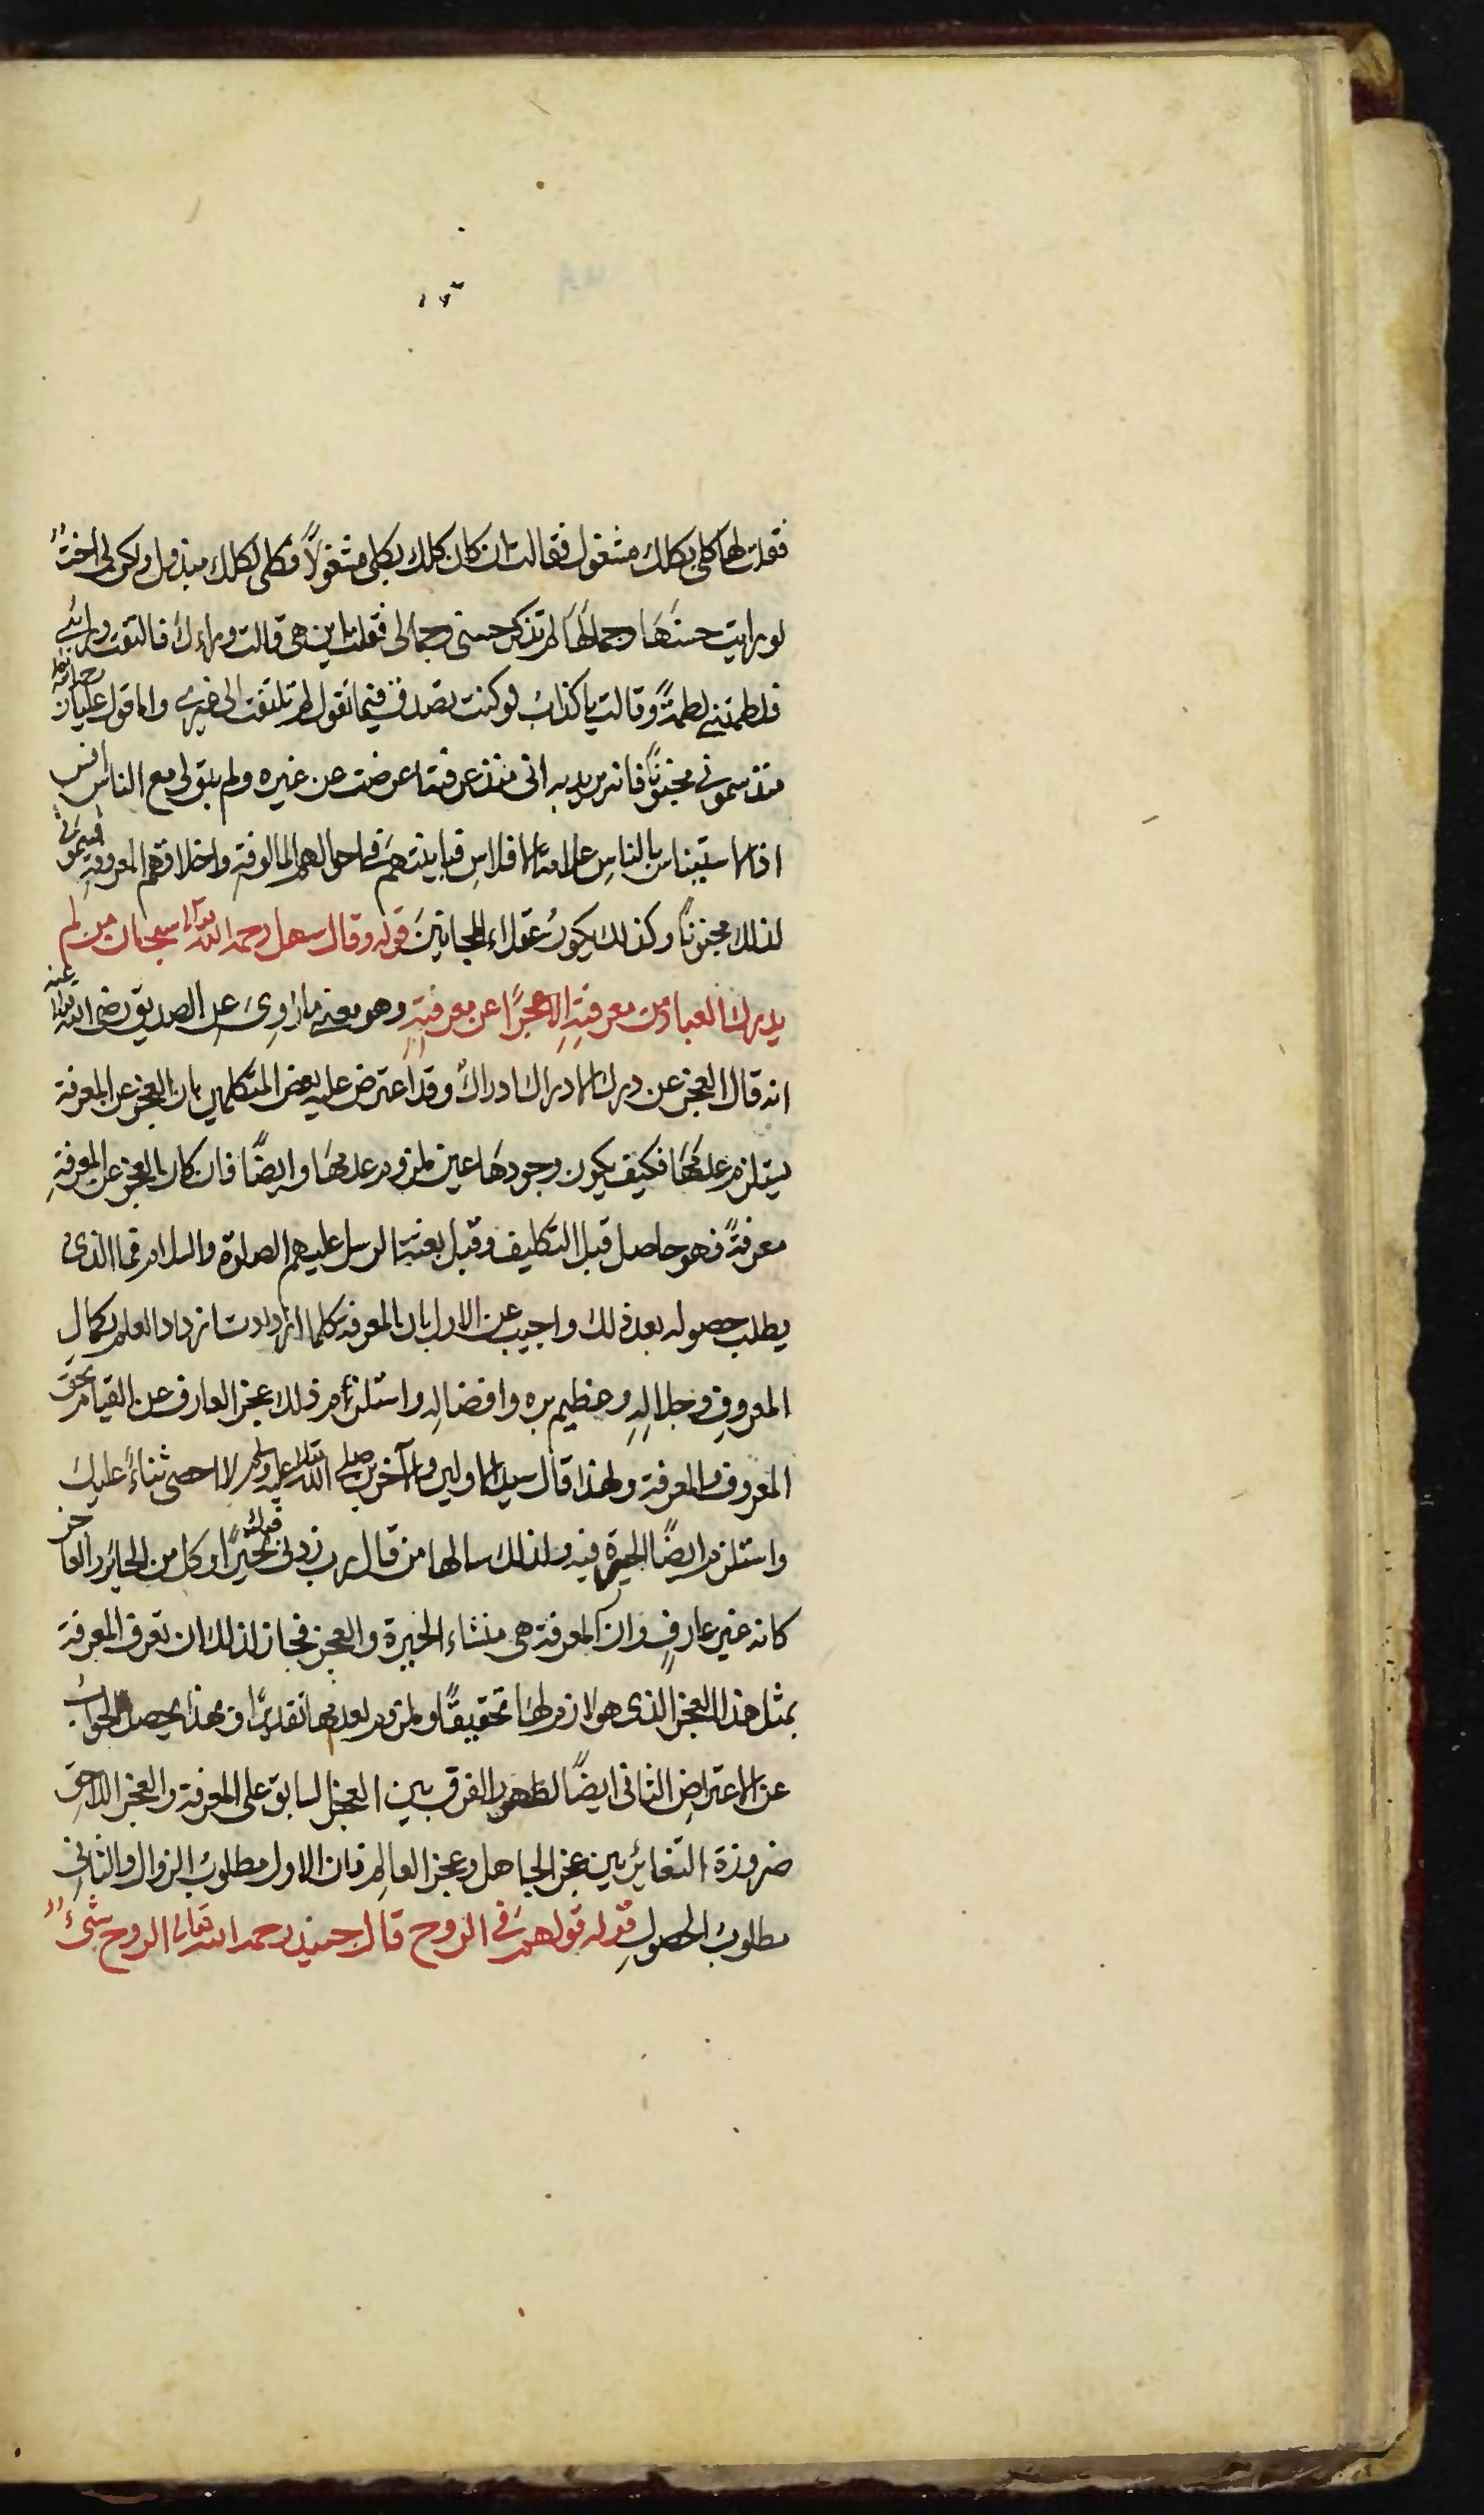 فقلت لها كلى بكلك مشغول فقالت ان كان كلك بكلى مشغولاً فكلى لكلك مبذول ولكن لى اختٌ
لو رايت حسنَهَا وجمالَهَا لم تذكر حسنى وجمالى فقلت اين هى قالت وراءك فالتفت ورائى
فلطمتنى لطمةً وقالت يا كذاب لو كنت تصدق فيما تقول لم تلتفت الى غيرى واما قول عليان رحمه الله
منذ سمونى مجنونًا فانه يريد به انى منذ عرفته اعرضت عن غيره ولم يبق لى مع الناس انس
اذ الاستيناس بالناسِ علامة الافلاسِ فباينتهم فى احوالهم المالوفة واخلاقهم المعروفةِ فيسمونى
لذلك مجنونًا وكذلك يكونُ عقلاء المجانينَ قوله وقال سهل رحمه الله تعالى سبحان من لم
يدرك العباد من معرفتِهِ الا عجزًا عن معرفتِهِ وهو معنى ما رُوِىَ عن الصديق رضى الله تعالى عنه
انه قال العجز عن درك الادراك ادراكٌ وقد اعترض عليه بعض المتكلمين بان العجز عن المعرفة
يستلزم عدمَهَا فكيف يكون وجودهَا عين ملزوم عدمهَا وايضًا فان كان العجز عن المعرفةِ
معرفةً فهو حاصل قبل التكليف وقبل بعثة الرسل عليهم الصلوة والسلام فما الذى
يطلب حصوله بعد ذلك واجيب عن الاول بان المعرفة كلما ازدادت ازداد العلم بكمالِ
المعروفِ وجلالِهِ وعظيم بره وافضالِهِ واستلزم ذلك عجز العارف عن القيام بحق
المعروف والمعرفة ولهذا قال سيد الاولين والآخرين صلى الله تعالى عليه وسلم لا احصى ثناءً عليك
واستلزم ايضًا الحيرة فيه ولذلك سالها من قال رب زدنى فيك تحيرًا وكل من الحائر والعاجز
كانه غير عارفٍ وان المعرفة هى منشاء الحيرة والعجز فجاز لذلك ان تعرف المعرفة
بمثل هذا العجز الذى هو لازم لهَا تحقيقًا وملزوم لعدمها تقديرًا وبهذا يحصل الجوابُ
عن الاعتراضِ الثانى ايضًا لظهور الفرق بين العجز السابق على المعرفة والعجز اللاحق
ضرورة التغائر بين عجز الجاهل وعجز العالِم فان الاول مطلوبُ الزوال والثانى
مطلوبُ الحصولِ قوله قولهم فى الروح قال جنيد رحمه الله تعالى الروح شىءٌ